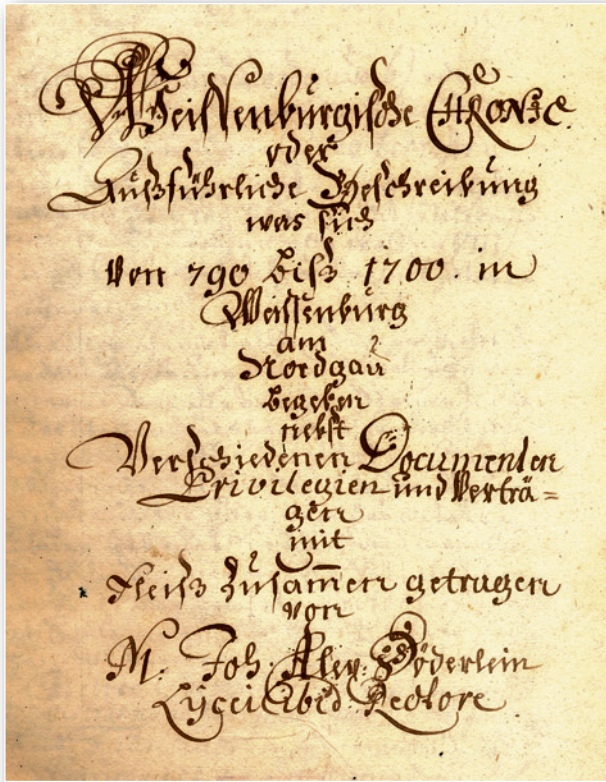 Weissenburgische CHRONIC.
oder
Außführliche Beschreibung
was sich
von 790 biß 1700. in
Weissenburg
am
Nordgau
begeben
nebst
Verschiedenen Documenten
Privilegien und Verträ=
gen
mit
Fleiß zusam̅en getragen
von
M. Joh. Alex. Döderlein
Lÿcei ibid. Rectore